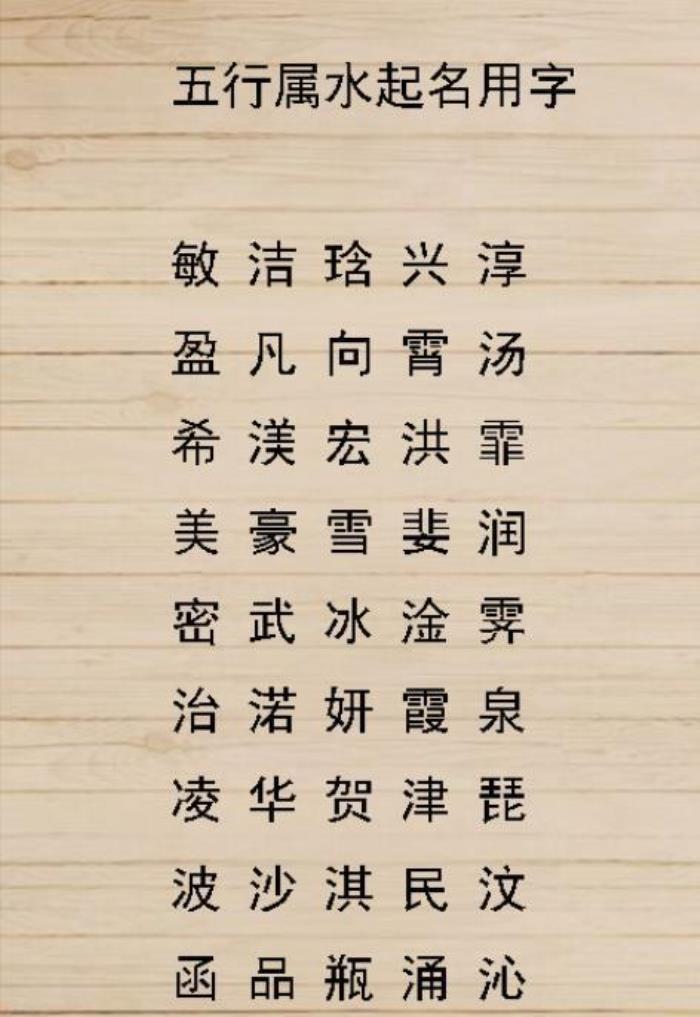 五行属水起名用字
敏 洁 琀 兴 淳
盈 凡 向 霄 汤
希 渼 宏 洪 霏
美 豪 雪 斐 润
密 武 冰 淦 霁
治 渃 妍 霞 泉
凌 华 贺 津 琵
波 沙 淇 民 汶
函 品 瓶 涌 沁